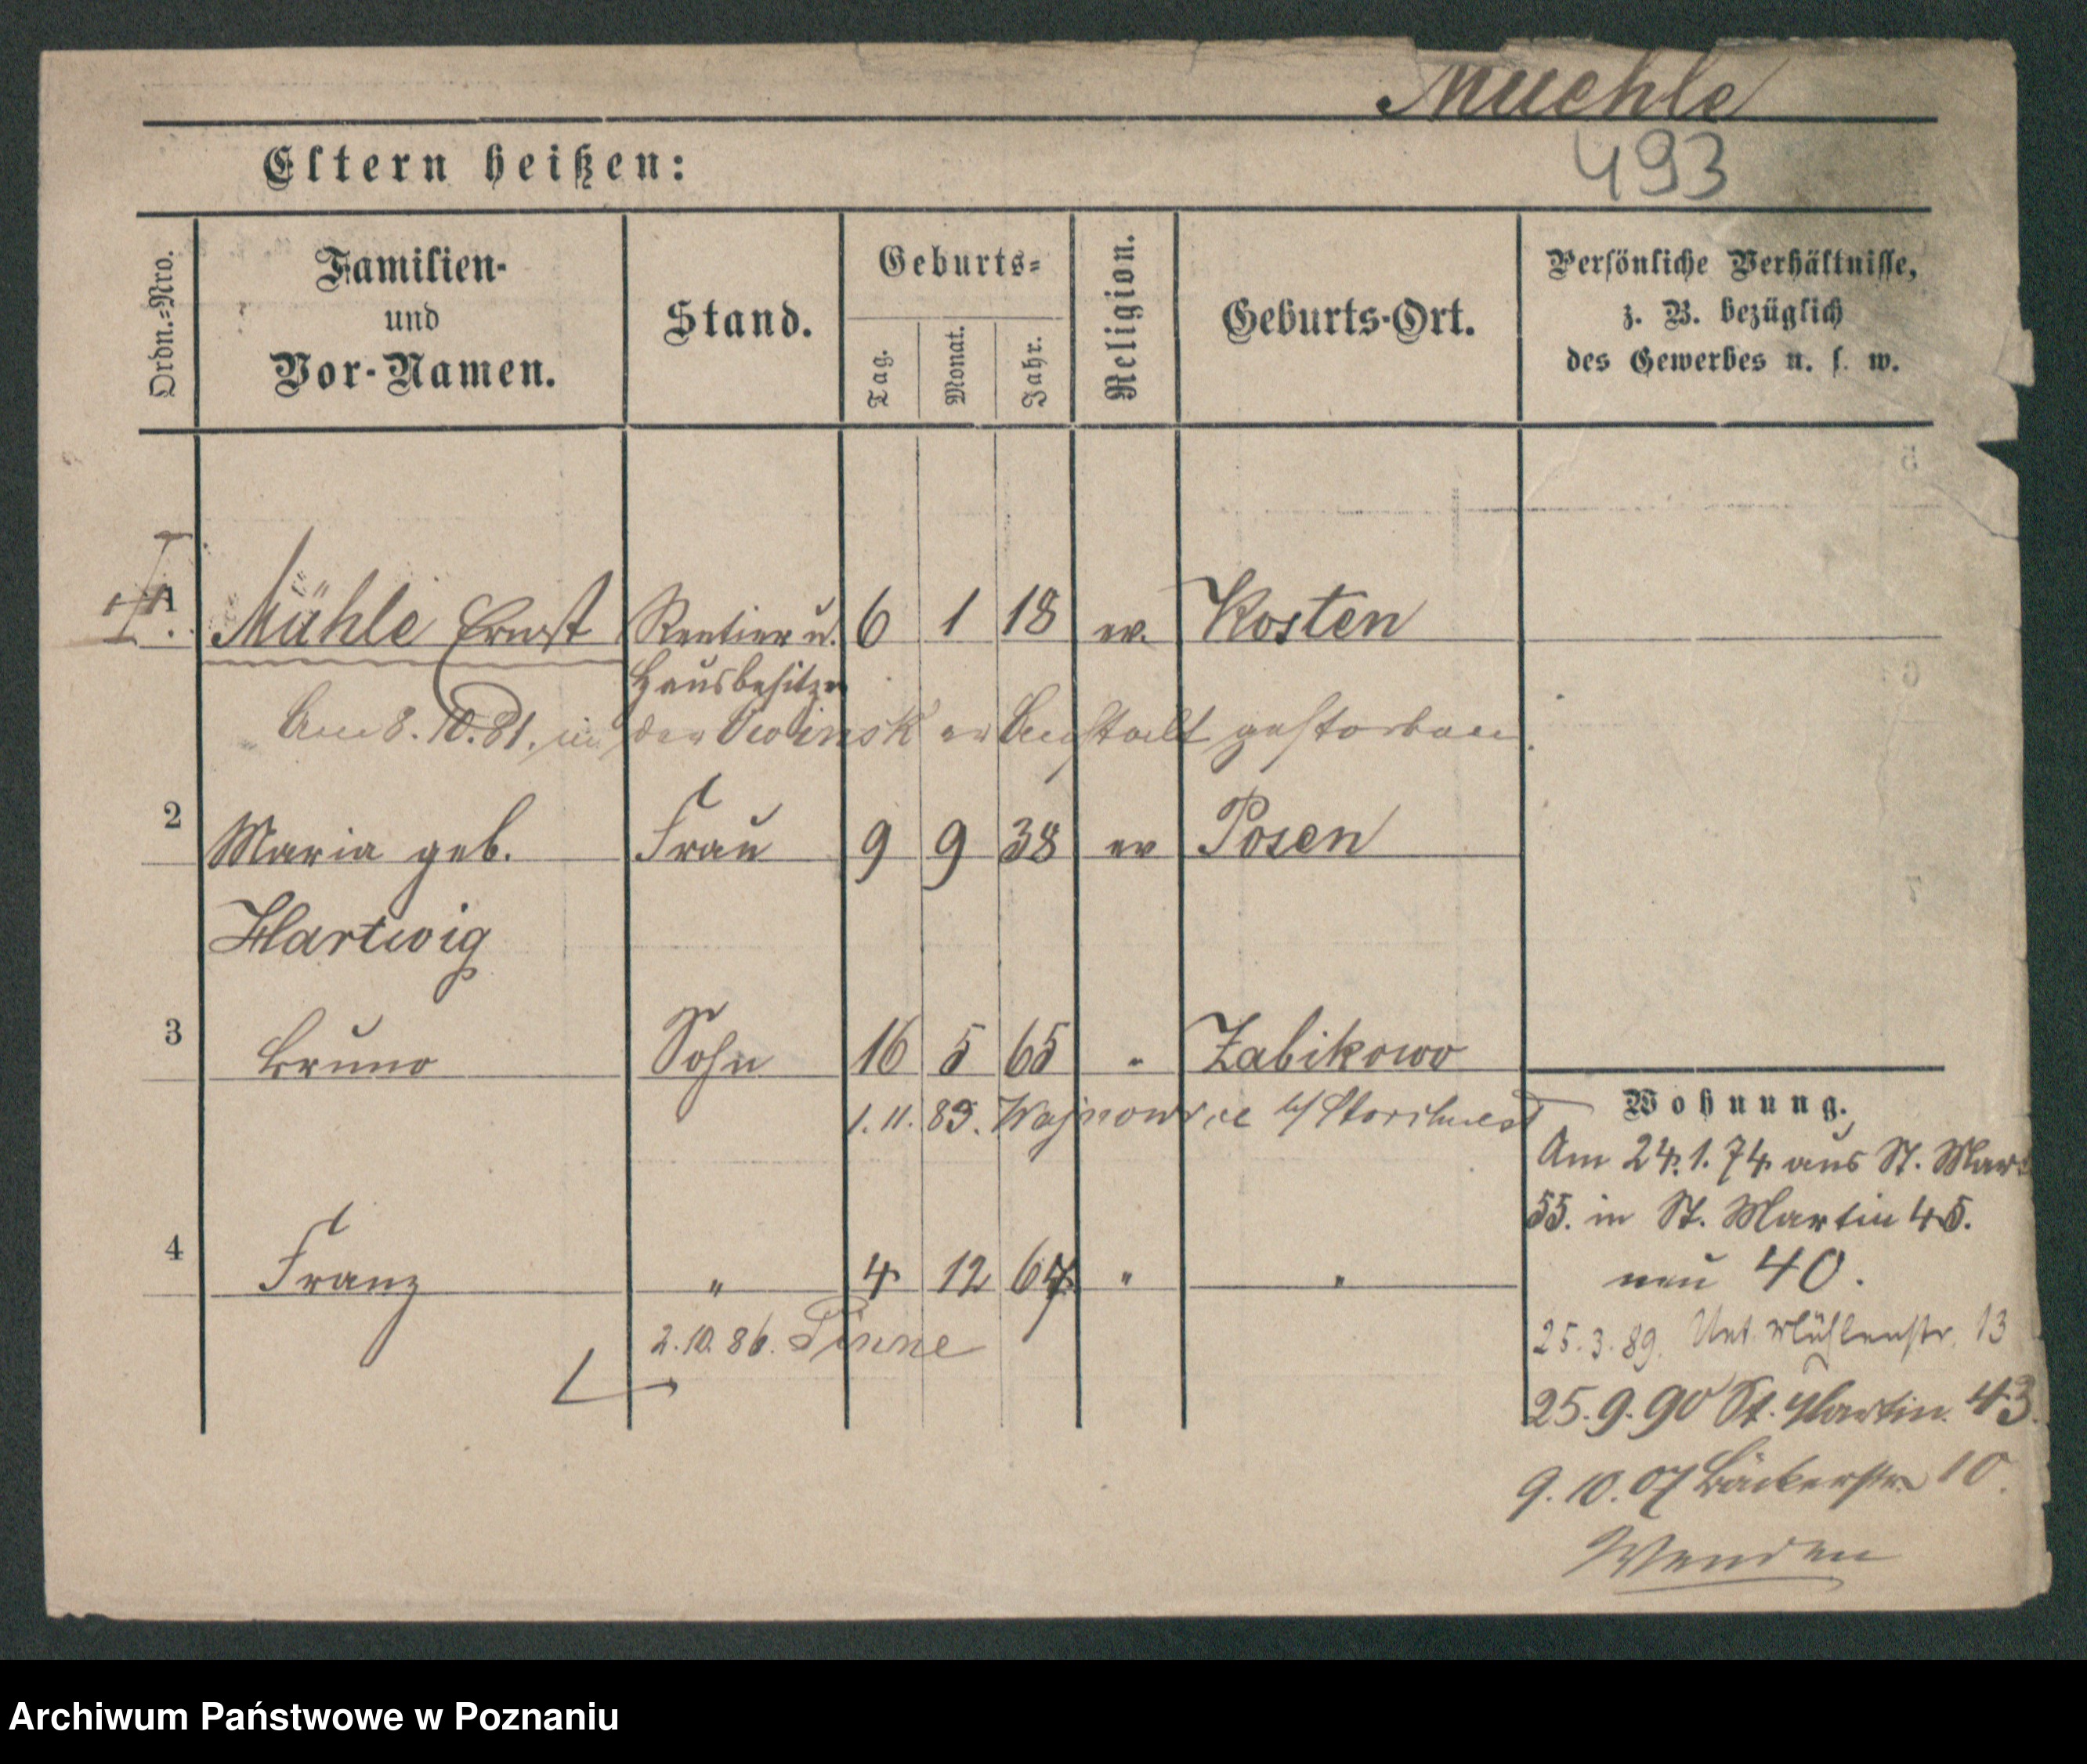 Muehle
493
Eltern heißen:
Ordn.=Nro.
Familien-
und
Vor-Namen.
Stand.
Geburts=
Tag.
Monat.
Jahr.
Religion.
Geburts-Ort.
Persönliche Verhältnisse,
z. B. bezüglich
des Gewerbes u. s. w.
1 Mühle Ernst Rentier u. 6 1 18 ev. Kosten
Hausbesitzer
Am 8.10.81. in der Owinsk er Anstalt gestorben.
2 Maria geb. Frau 9 9 38 ev Posen
Hartwig
3 Bruno Sohn 16 5 65 " Zabikowo
1.11.89. Wojnowice b/
4 Franz " 4 12 67 " "
2.10.86. Pinne
Wohnung.
Am 24.1.74 aus St. Mart
55. in St. Martin 45.
neu 40.
25.3.89. Unt. Mühlenstr. 13
25.9.90 St. Martin 43.
9.10.07 Bäckerstr. 10.
Wenden
Archiwum Państwowe w Poznaniu